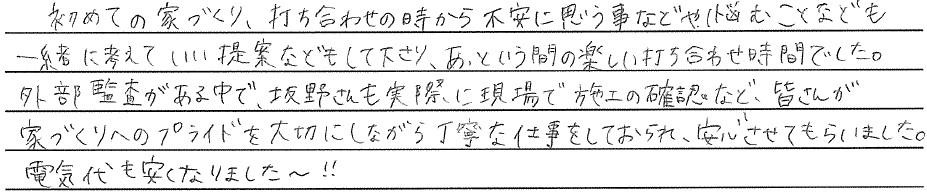 初めての家づくり、打ち合わせの時から不安に思う事などや悩むことなども
一緒に考えていい提案などもして下さり、あっという間の楽しい打ち合わせ時間でした。
外部監査がある中で、坂野さんも実際に現場で施工の確認など、皆さんが
家づくりへのプライドを大切にしながら丁寧な仕事をしておられ、安心させてもらいました。
電気代も安くなりました〜!!